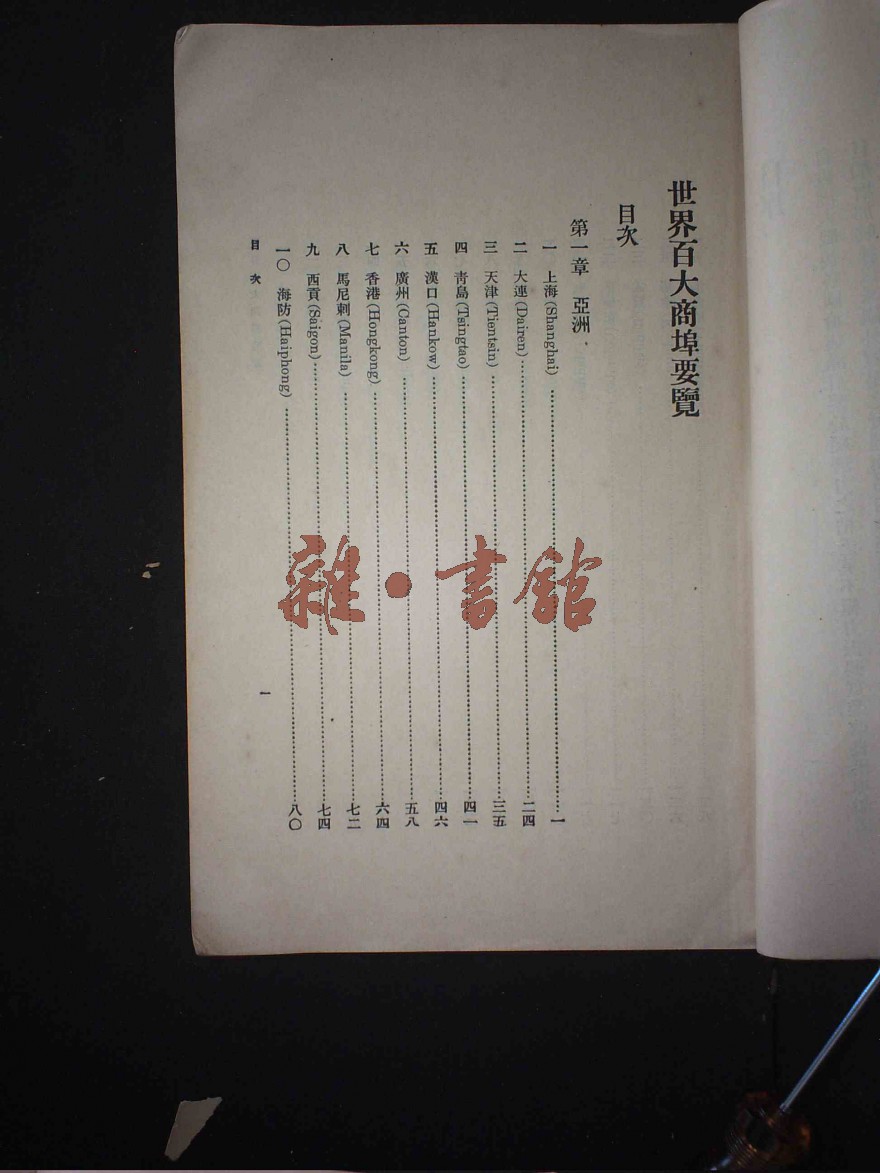 世界百大商埠要覽
目次
第一章 亞洲
一 上海(Shanghai)……一
二 大連(Dairen)……二四
三 天津(Tientsin)……三五
四 靑島(Tsingtao)……四一
五 漢口(Hankow)……四六
六 廣州(Canton)……五八
七 香港(Hongkong)……六四
八 馬尼剌(Manila)……七二
九 西貢(Saigon)……七四
一〇 海防(Haiphong)……八〇
目次
一
雜·書館